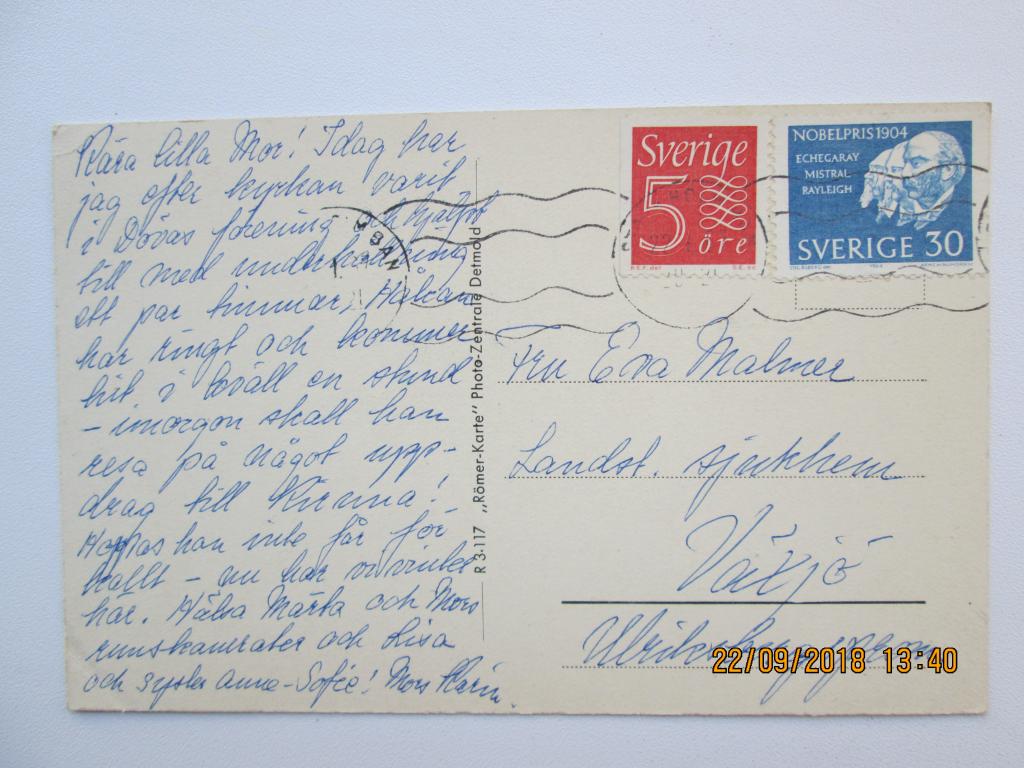 Kära lilla Mor! Idag har
jag efter kyrkan varit
i Dövas förening och hjälpt
till med underhållning
ett par timmar. Håkan
har ringt och kommer
hit i kväll en stund
– imorgon skall han
resa på något upp-
drag till Kiruna!
Hoppas han inte får för
kallt – nu har vi vinter
här. Hälsa Märta och Mors
rumskamrater och Lisa
och syster Anna-Sofie! Mors Karin.
R 3-117 „Römer-Karte" Photo-Zentrale Detmold
Sverige
5
öre
NOBELPRIS 1904
ECHEGARAY
MISTRAL
RAYLEIGH
SVERIGE 30
Fru Eva Malmer
Landst. sjukhem
Växjö
22/09/2018 13:40